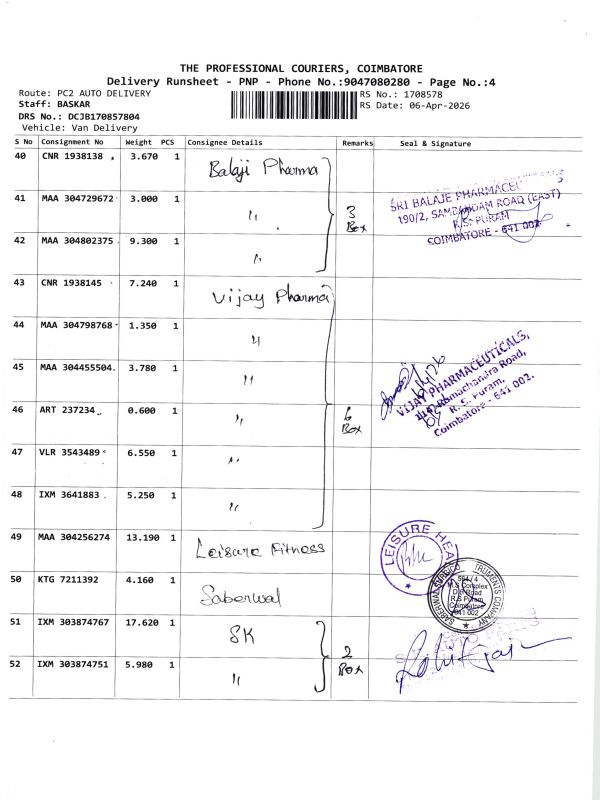 THE PROFESSIONAL COURIERS, COIMBATORE
Delivery Runsheet - PNP - Phone No.:9047080280 - Page No.:4
Route: PC2 AUTO DELIVERY
RS No.: 1708578
Staff: BASKAR
RS Date: 06-Apr-2026
DRS No.: DCJB170857804
Vehicle: Van Delivery
S No Consignment No Weight PCS Consignee Details Remarks Seal & Signature
40 CNR 1938138 3.670 1 Balaji Pharma
41 MAA 304729672 3.000 1 〃 3 Box
SRI BALAJE PHARMACEU
190/2, SAMBANDAM ROAD (EAST)
R.S. PURAM
COIMBATORE - 641 002
42 MAA 304802375 9.300 1 〃
43 CNR 1938145 7.240 1 Vijay Pharma
44 MAA 304798768 1.350 1 〃
45 MAA 304455504 3.780 1 〃
VIJAY PHARMACEUTICALS,
Ramachandra Road,
R. S. Puram,
Coimbatore - 641 002.
46 ART 237234 0.600 1 〃 6 Box
47 VLR 3543489 6.550 1 〃
48 IXM 3641883 5.250 1 〃
49 MAA 304256274 13.190 1 Leisure Fitness
LEISURE HEA
50 KTG 7211392 4.160 1 Saberwal
SABERWAL SURGICO TRUMENTS COMPANY
564 / 4
M.S Complex
D.B Road
R.S Puram
Coimbatore
641 002
51 IXM 303874767 17.620 1 SK
52 IXM 303874751 5.980 1 〃 2 Box